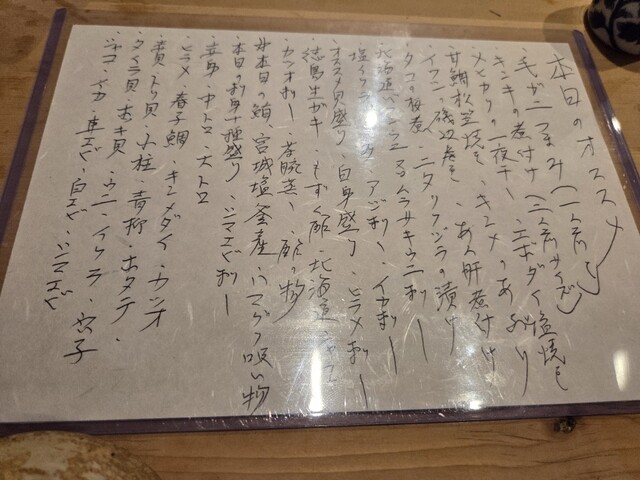 本日のオススメ
・毛がにつまみ(一人前)
・キンキの煮付け(二人前サイズ)
・メヒカリの一夜干し ・エボダイ塩焼き
・甘鯛松笠焼き ・キンメのあぶり
・イワシの磯辺巻き ・あん肝煮付け
・タコの桜煮 ・ニタリクジラの漬け
・北海道 ムラサキウニ刺し
・塩イクラ ・アジ刺し ・イカ刺し
・オススメ貝盛り ・白身盛り ・ヒラメ刺し
・徳島生ガキ ・もずく酢 北海道
・カツオ刺し ・茶碗蒸し ・酢の物
※本日の鮪、宮城塩釜産 ・ハマグリ吸い物
・本日のお刺身十種盛り ・シマエビ刺し
・赤身・中トロ・大トロ
・ヒラメ・春子鯛・キンメダイ・カツオ
・青ヤギ・小柱・青柳・ホタテ・
・タイラ貝・赤貝・ウニ・イクラ・穴子
・シャコ・イカ・車エビ・白エビ・シマエビ